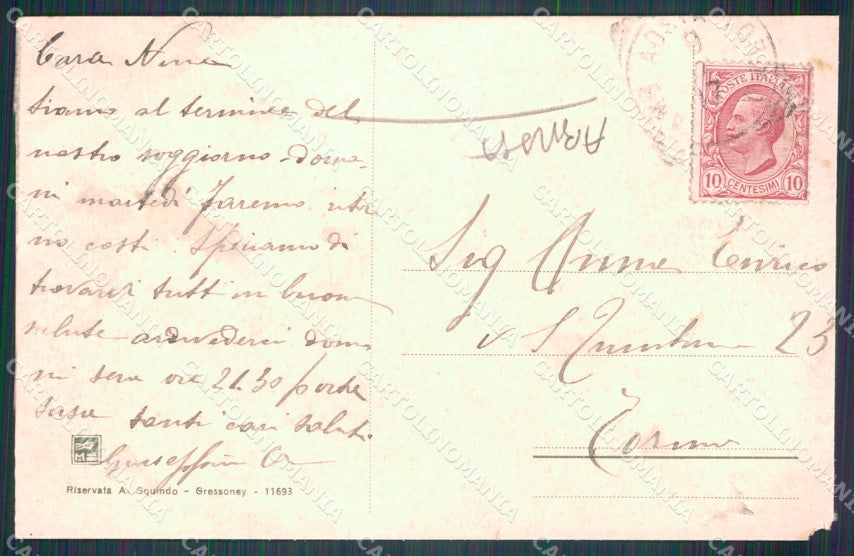 Cara Nina
siamo al termine del
nostro soggiorno - doma-
ni martedì faremo ritor
no costì. Speriamo di
trovarvi tutti in buona
salute arrivederci doma
ni sera ore 21.30 porta
susa tanti cari saluti
Giuseppina
Riservata A. Squindo - Gressoney - 11693
AOSTA
POSTE ITALIANE
10 CENTESIMI 10
Sig Enrico
v S Quintino 23
Torino
CARTOLINOMANIA